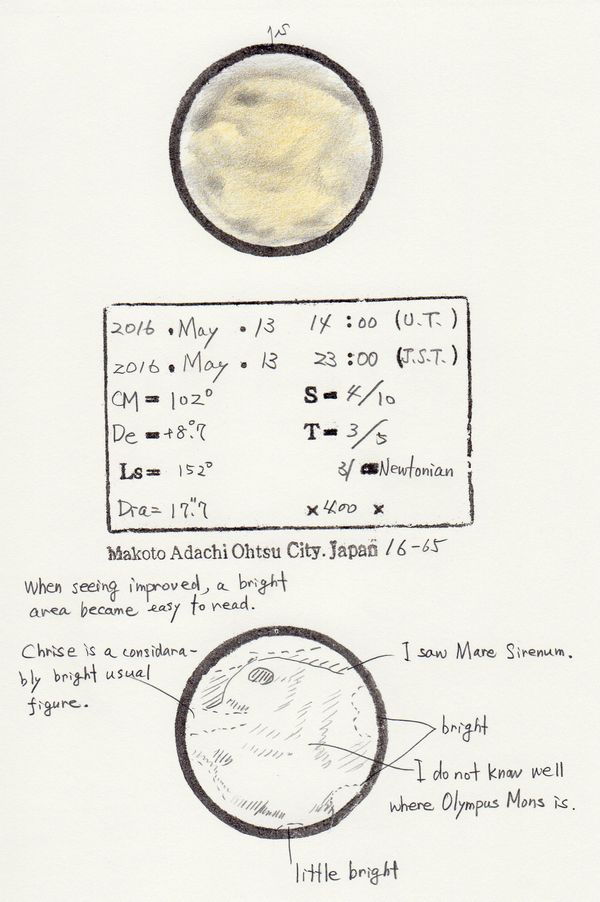 2016 . May . 13 14 : 00 (U.T.)
2016 . May . 13 23 : 00 (J.S.T.)
CM = 102° S = 4/10
De = +8°.7 T = 3/5
Ls = 152° Newtonian
Dia = 17".7 × 400 ×
Makoto Adachi Ohtsu City. Japan 16-65
When seeing improved, a bright
area became easy to read.
Chrise is a considara-
bly bright usual
figure.
I saw Mare Sirenum.
bright
I do not know well
where Olympus Mons is.
little bright